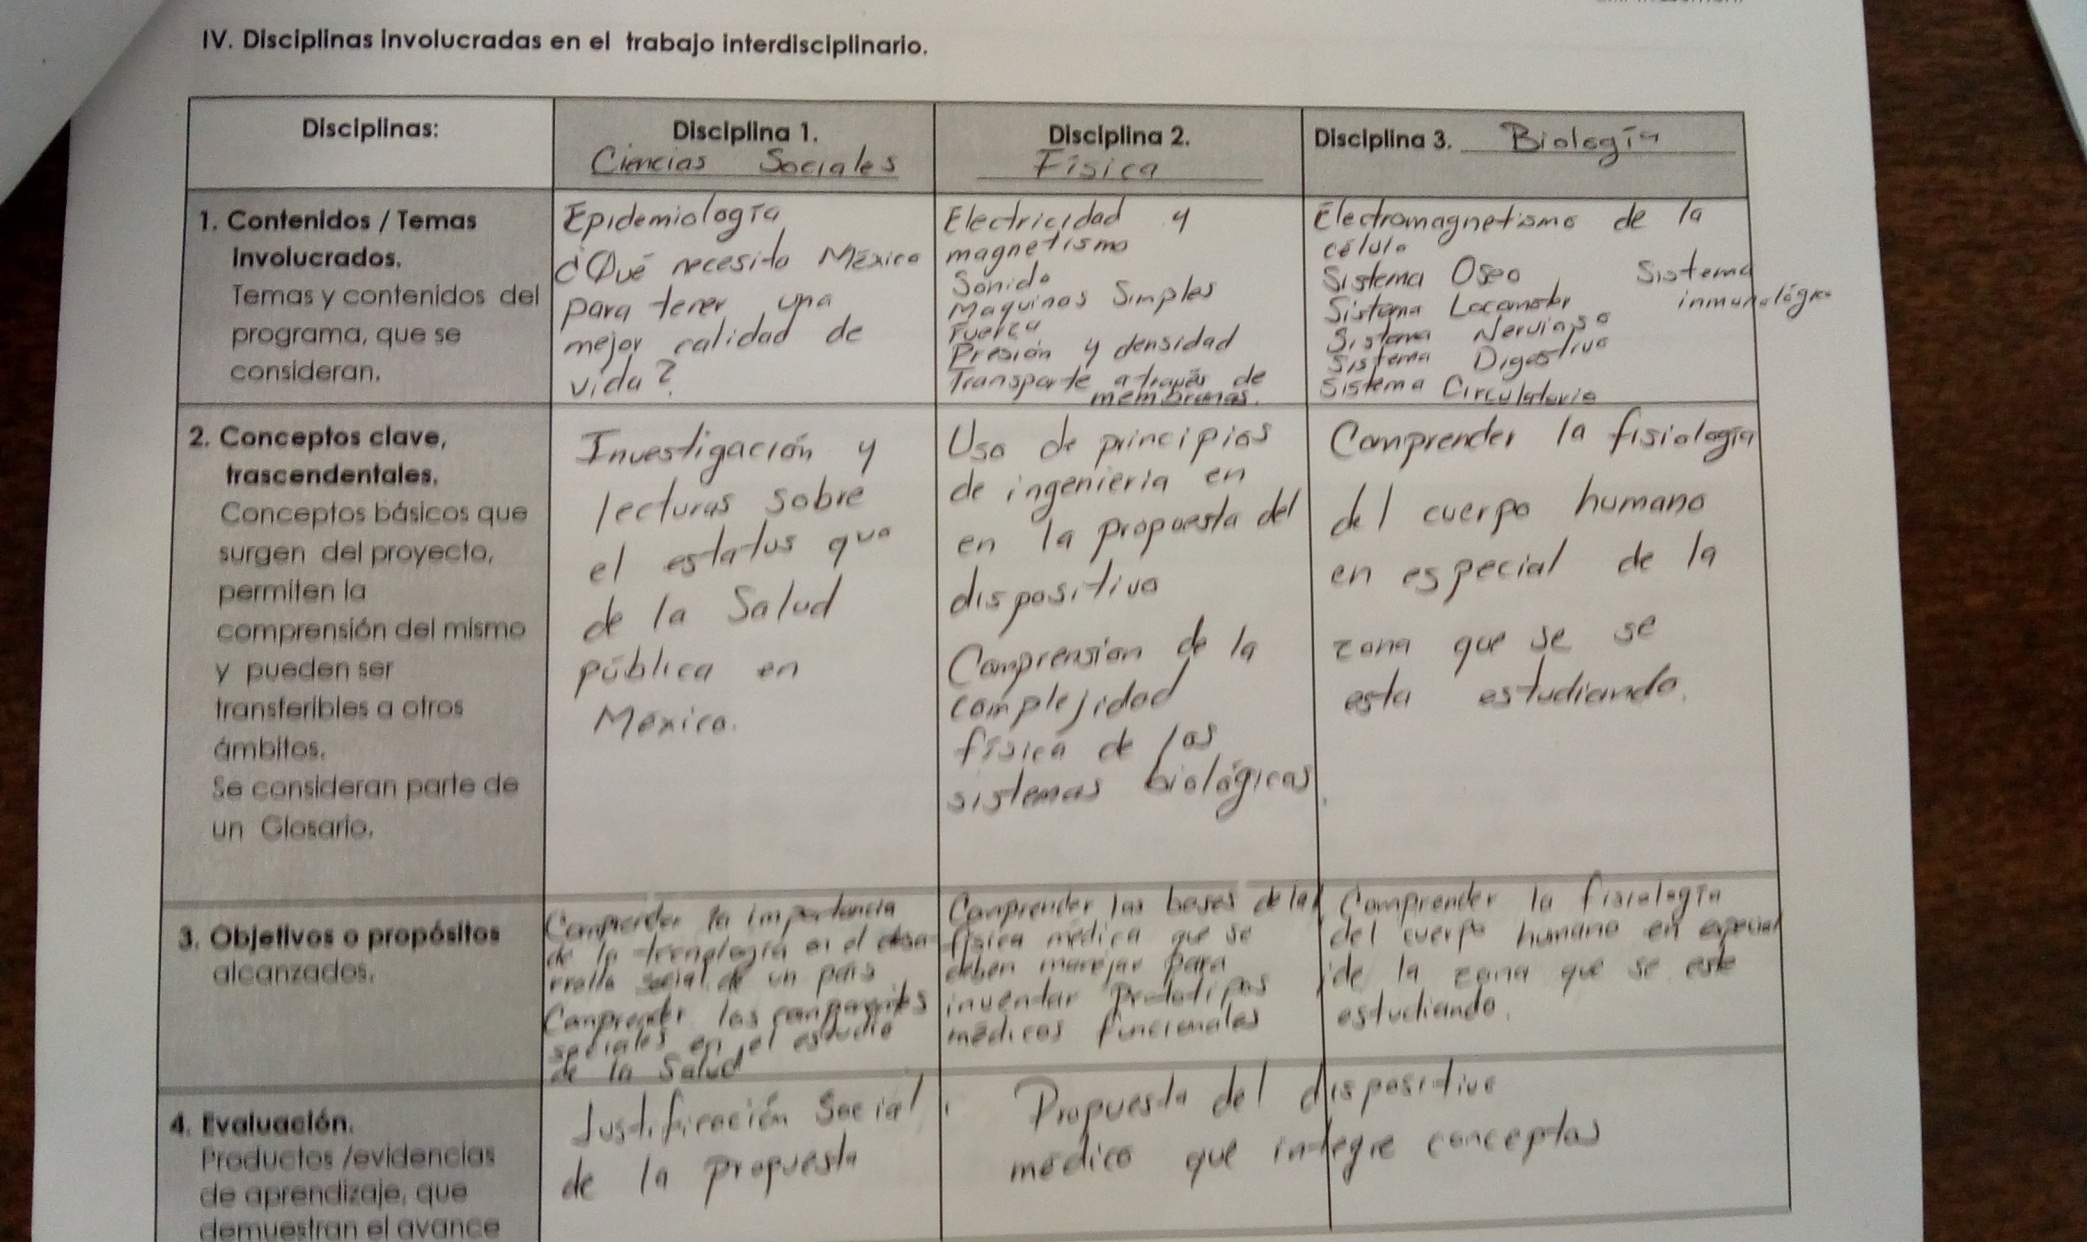 IV. Disciplinas involucradas en el trabajo interdisciplinario.
Disciplinas:
Disciplina 1.
Ciencias Sociales
Disciplina 2.
Física
Disciplina 3. Biología
1. Contenidos / Temas
involucrados.
Temas y contenidos del
programa, que se
consideran.
Epidemiología
¿Qué necesita México
para tener una
mejor calidad de
vida?
Electricidad y
magnetismo
Sonido
Maquinas Simples
Fuerza
Presión y densidad
Transporte a través de
membranas.
Electromagnetismo de la
célula
Sistema Oseo Sistema
inmunológico
Sistema Locomotor
Sistema Nervioso
Sistema Digestivo
Sistema Circulatorio
2. Conceptos clave,
trascendentales.
Conceptos básicos que
surgen del proyecto,
permiten la
comprensión del mismo
y pueden ser
transferibles a otros
ámbitos.
Se consideran parte de
un Glosario.
Investigación y
lecturas sobre
el estatus quo
de la Salud
pública en
México.
Uso de principios
de ingeniería en
en la propuesta del
dispositivo
Comprension de la
complejidad
física de los
sistemas biológicos.
Comprender la fisiología
del cuerpo humano
en especial de la
zona que se se
esta estudiando.
3. Objetivos o propósitos
alcanzados.
Comprender la importancia
de la tecnología en el desa-
rrollo social de un país
Comprender los componentes
sociales en el estudio
de la Salud
Comprender las bases de la
física médica que se
deben manejar para
inventar prototipos
médicos funcionales
Comprender la fisiología
del cuerpo humano en especial
de la zona que se este
estudiando.
4. Evaluación.
Productos /evidencias
de aprendizaje, que
demuestran el avance
Justificación Social
de la propuesta
Propuesta del dispositivo
médico que integre conceptos